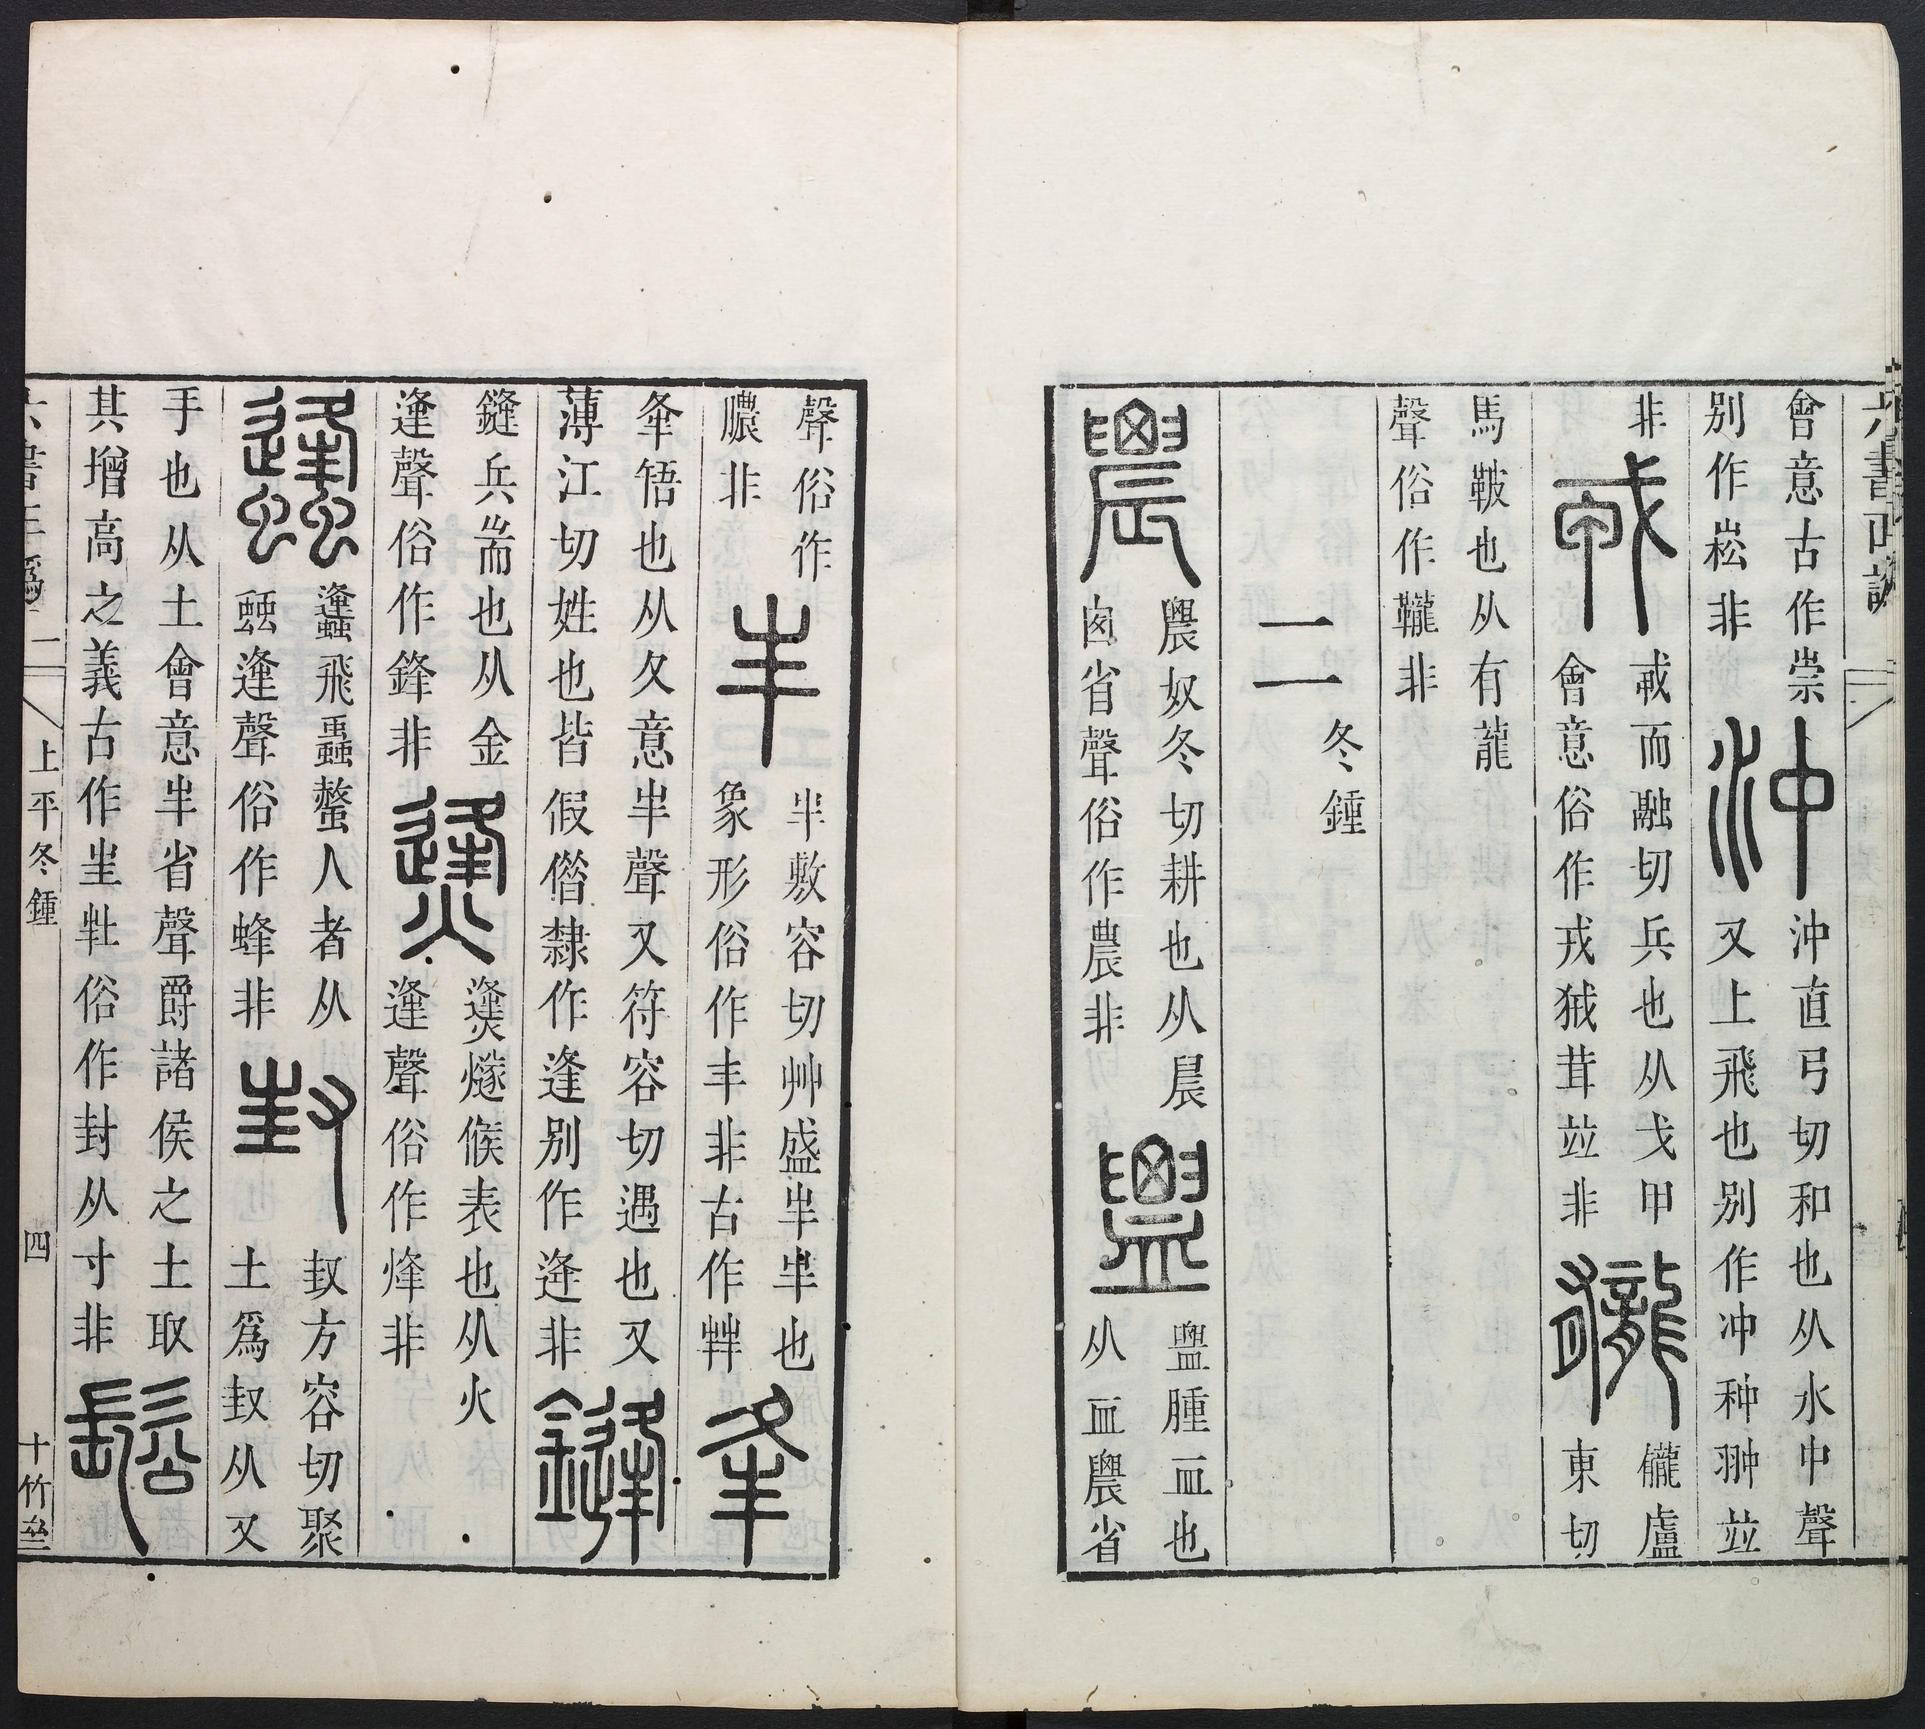 會意古作崇
別作崧非
沖
沖直弓切和也从水中聲
又上飛也別作冲种翀竝
非
戎
戎而融切兵也从戈甲
會意俗作戎狨茸竝非
龓
龓盧
東切
馬鞁也从有龍
聲俗作𩍅非
二
冬鍾
農
農奴冬切耕也从晨
囟省聲俗作農非
盥
腫血也
从血農省
聲俗作
膿非
丰
丰敷容切艸盛丰丰也
象形俗作丰非古作
夆
夆啎也从夂意丰聲又符容切遇也又
薄江切姓也皆假僣隸作逢別作逄非
鏠
鏠兵耑也从金
逢聲俗作鋒非
㷭
㷭燧候表也从火
逢聲俗作烽非
蠭
蠭飛蟲螫人者从
䖵逢聲俗作蜂非
封
封方容切聚
土爲封从又
手也从土會意丰省聲爵諸侯之土取
其增高之義古作𡉚𡉘俗作封从寸非
鬆
六書正譌
上平冬鍾
四
十竹